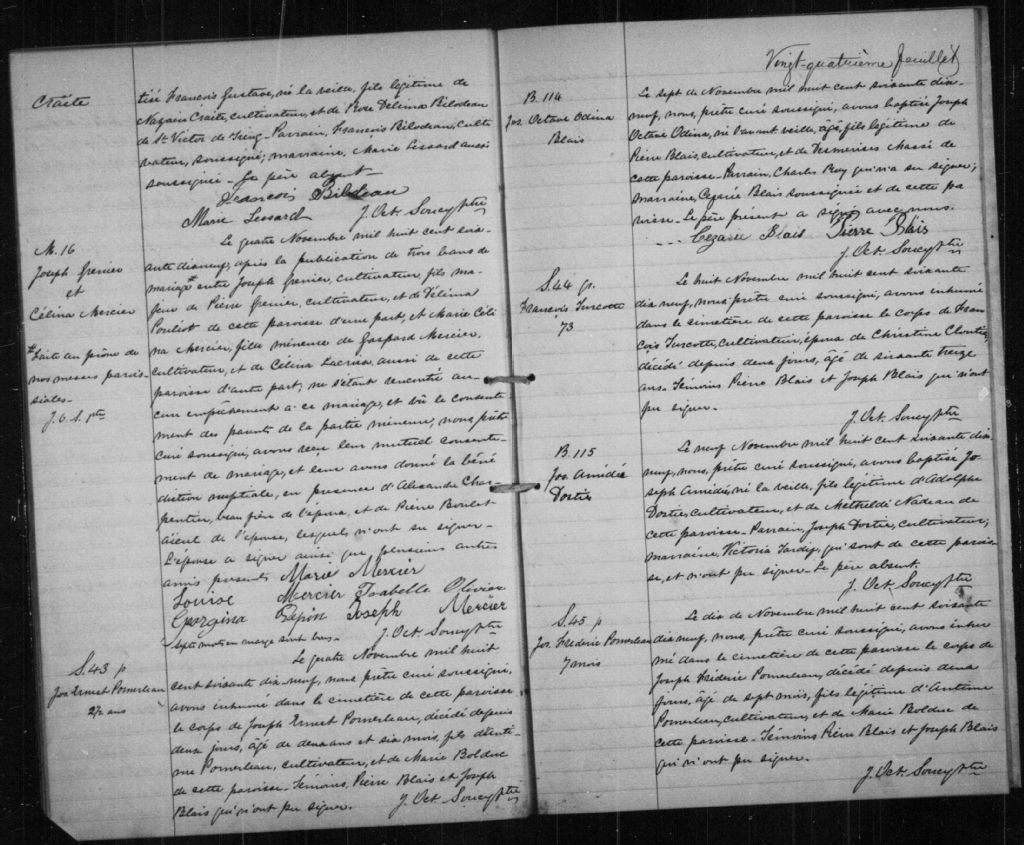 Craite
tisé François Gustave, né la veille, fils légitime de
Nazaire Craite, cultivateur, et de Rose Délima Bilodeau
de St Victor de Tring - Parrain, François Bilodeau, culti
vateur, soussigné; marraine, Marie Lessard aussi
soussignée - Le père absent
Francois Bilodeau
Marie Lessard J. Oct. Soucy ptre
M. 16
Joseph Grenier
et
Célina Mercier
# Faite au prône de
nos messes parois-
siales.
J. O. S. ptre
Le quatre Novembre mil huit cent soix-
ante dix neuf, après la publication de trois bans de
mariage # entre Joseph Grenier, cultivateur, fils ma-
jeur de Pierre Grenier, cultivateur, et de Délima
Pouliot de cette paroisse d'une part, et Marie Céli
na Mercier, fille mineure de Gaspard Mercier,
cultivateur, et de Célina Lacroix aussi de cette
paroisse d'autre part; ne s'étant rencontré au-
cun empêchement à ce mariage, et vû le consente
ment des parents de la partie mineure, nous, prêtre
curé soussigné, avons reçu leur mutuel consente-
ment de mariage, et leur avons donné la béné
diction nuptiale, en présence d'Alexandre Char-
pentier, beau frère de l'époux, et de Pierre Boulet
aïeul de l'épouse, lesquels n'ont su signer -
L'épouse a signer ainsi que plusieurs autres
amis présents Marie Mercier
Louise Mercier Isabelle Olivier
Georgina Joseph Mercier
Sept mots en marge sont bons. J. Oct. Soucy ptre
S. 43 p
Jos. Ernest Pomerleau
2½ ans
Le quatre Novembre mil huit
cent soixante dix neuf, nous prêtre curé soussigné,
avons inhumé dans le cimetière de cette paroisse
le corps de Joseph Ernest Pomerleau, décédé depuis
deux jours, âgé de deux ans et six mois, fils d'Anti-
me Pomerleau, cultivateur, et de Marie Bolduc
de cette paroisse - Témoins, Pierre Blais et Joseph
Blais qui n'ont pu signer. J. Oct. Soucy ptre
Vingt-quatrième feuillet
B. 114
Jos. Octave Odina
Blais
Le sept de Novembre mil huit cent soixante dix-
neuf, nous, prêtre curé soussigné, avons baptisé Joseph
Octave Odina, né l'avant veille, âgé, fils légitime de
Pierre Blais, cultivateur, et de Desmerises Massé de
cette paroisse - Parrain, Charles Roy qui n'a su signer;
marraine, Cezarie Blais soussignée et de cette pa
roisse - Le père présent a signé avec nous.
Cezarie Blais Pierre Blais
J. Oct. Soucy ptre
S. 44 gr.
Francois Turcotte
73
Le huit Novembre mil huit cent soixante
dix neuf, nous, prêtre curé soussigné, avons inhumé
dans le cimetière de cette paroisse le corps de Fran
çois Turcotte, cultivateur, époux de Christine Cloutier,
décédé depuis deux jours, âgé de soixante treize
ans - Témoins Pierre Blais et Joseph Blais qui n'ont
pu signer.
J. Oct. Soucy ptre
B. 115
Jos. Amédée
Dostie
Le neuf Novembre mil huit cent soixante dix
neuf, nous, prêtre curé soussigné, avons baptisé Jo
seph Amédée, né la veille, fils légitime d'Adolphe
Dostie, cultivateur, et de Methilde Nadeau de
cette paroisse - Parrain, Joseph Dostie, cultivateur;
marraine, Victoria Tardif, qui sont de cette parois-
se, et n'ont pu signer - Le père absent.
J. Oct. Soucy ptre
S. 45 p
Jos. Fréderic Pomerleau
7 mois
Le dix de Novembre mil huit cent soixante
dix neuf, nous, prêtre curé soussigné, avons inhu
mé dans le cimetière de cette paroisse le corps de
Joseph Fréderic Pomerleau, décédé depuis deux
jours, âgé de sept mois, fils légitime d'Antime
Pomerleau, cultivateur, et de Marie Bolduc de
cette paroisse - Témoins Pierre Blais et Joseph Blais
qui n'ont pu signer.
J. Oct. Soucy ptre